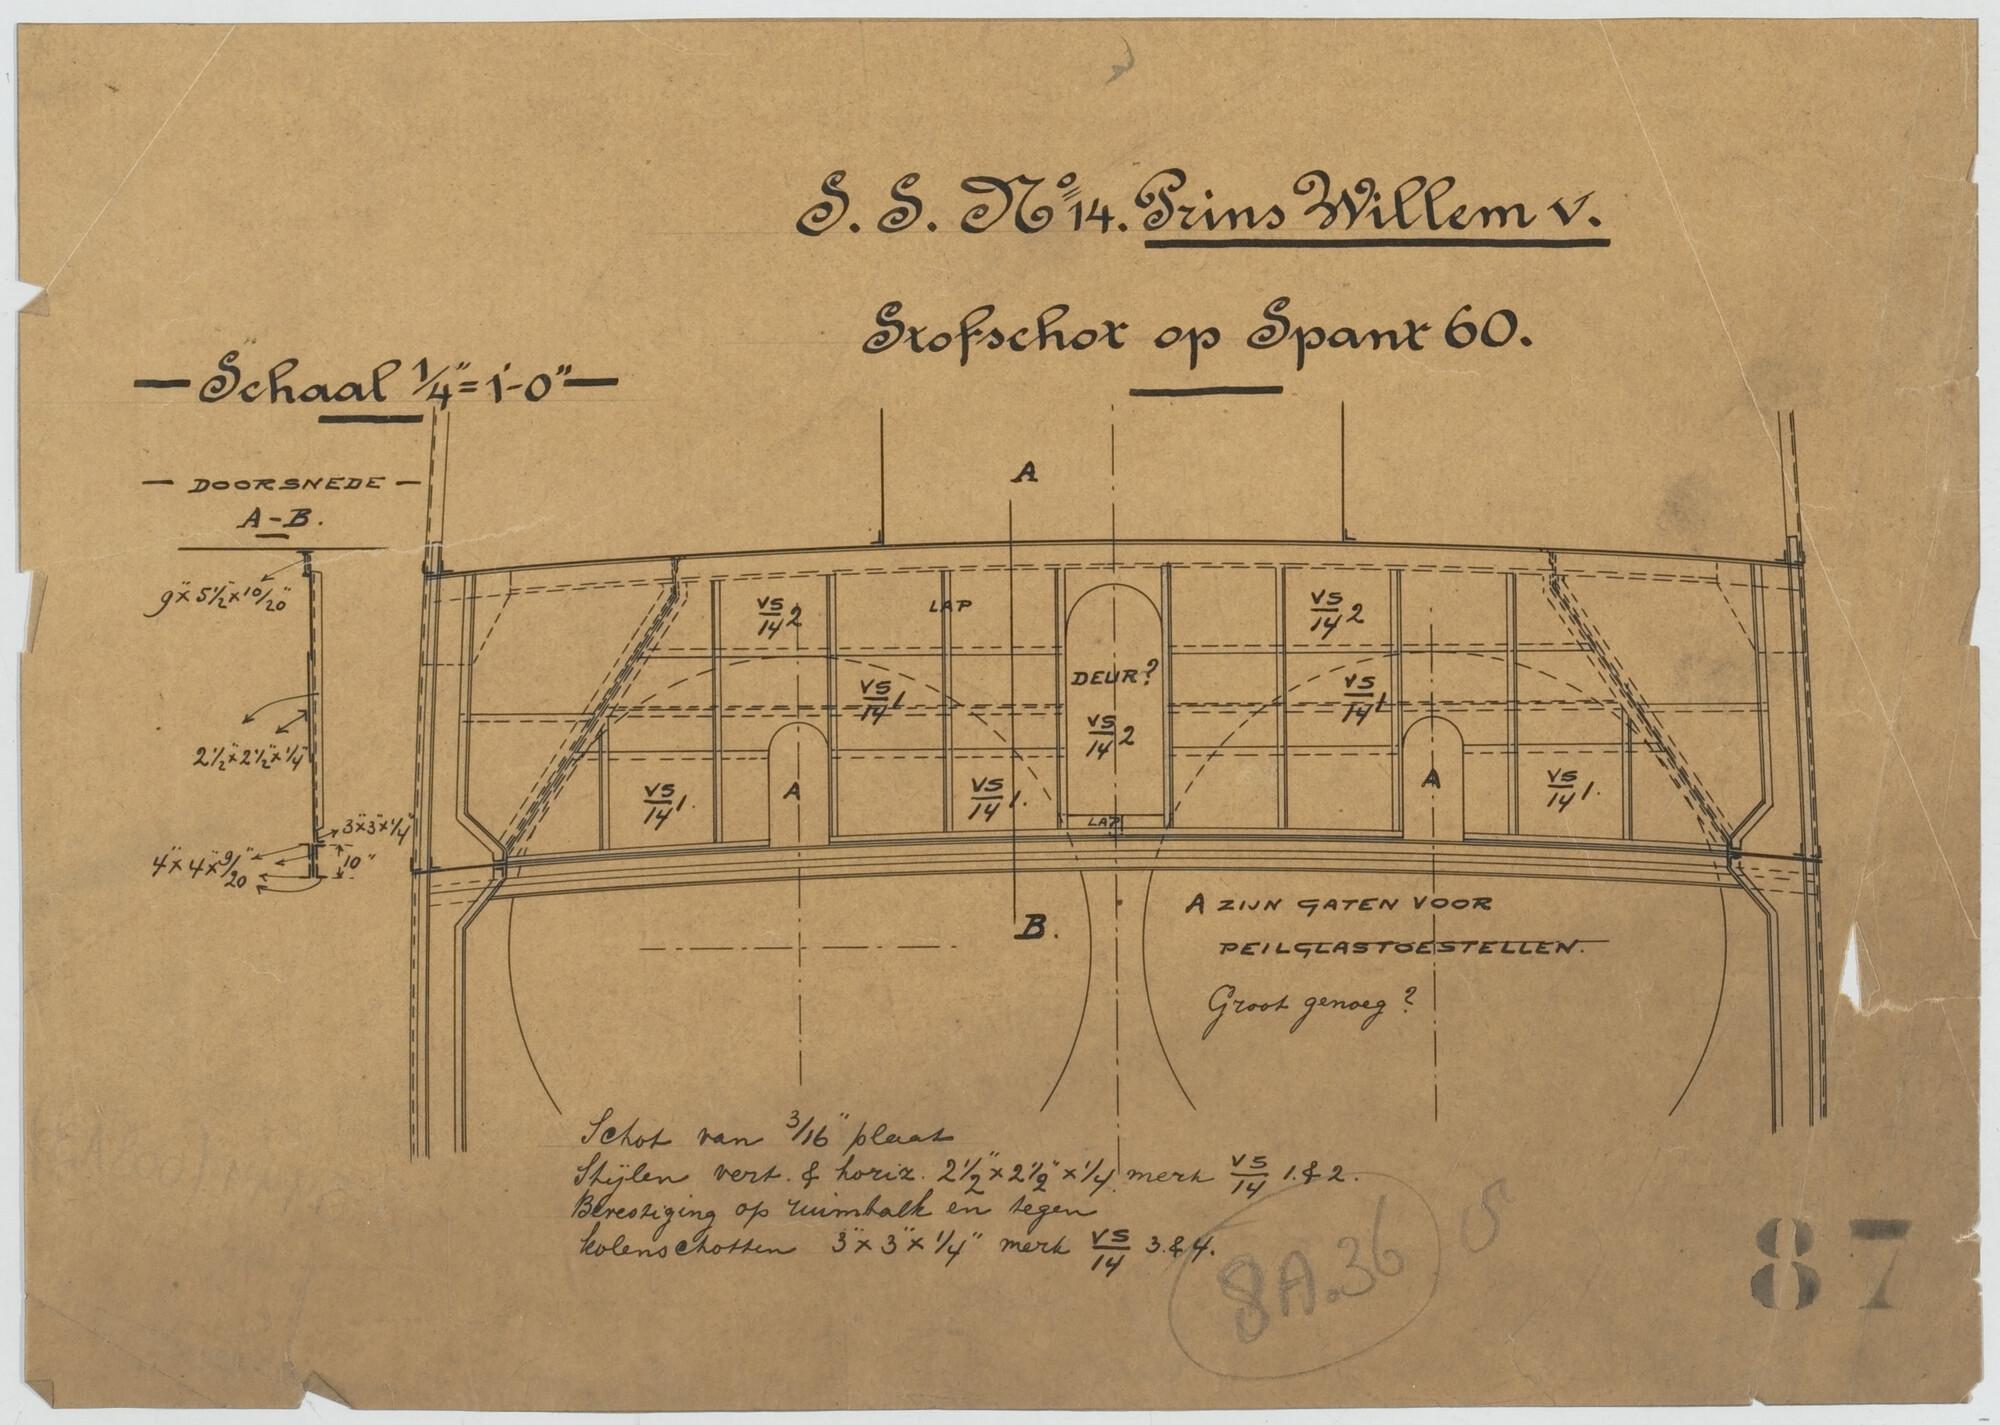 S. S. Nº 14. Prins Willem V.
Stofschot op Spant 60.
— Schaal 1/4" = 1'-0" —
— DOORSNEDE —
A-B.
9" x 5 1/2" x 10/20"
2 1/2" x 2 1/2" x 1/4"
3" x 3" x 1/4"
4" x 4" x 9/20"
10"
A
VS/14 2
LAP
VS/14 2
VS/14 1
DEUR?
VS/14 1
VS/14 2
VS/14 1.
A
VS/14 1.
A
VS/14 1.
LAP
B.
A ZIJN GATEN VOOR
PEILGLASTOESTELLEN.
Groot genoeg?
Schot van 3/16" plaat
Stijlen vert. & horiz. 2 1/2" x 2 1/2" x 1/4 merk VS/14 1 & 2.
Bevestiging op ruimbalk en tegen
kolenschotten 3" x 3" x 1/4" merk VS/14 3 & 4.
8A.36
5
87